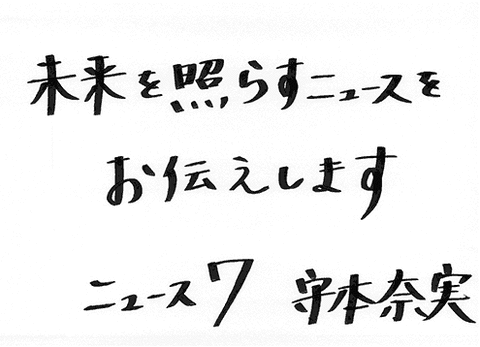 未来を照らすニュースを
お伝えします
ニュース7 守本奈実